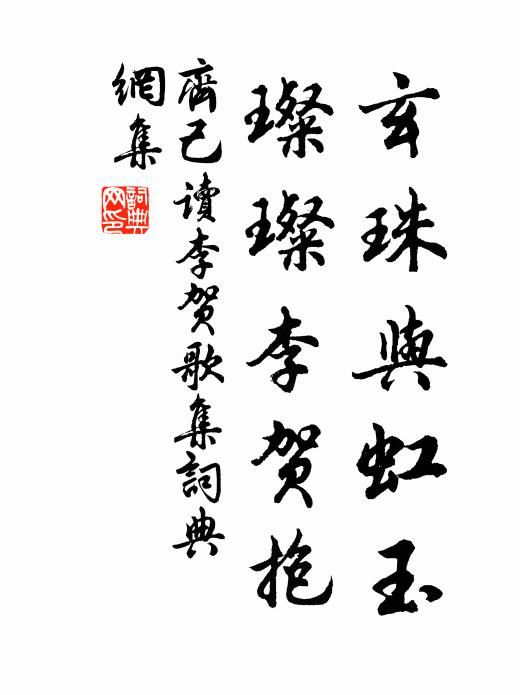 玄珠與虹玉
璨璨李贺抱
齊己讀李贺歌集詞典
網集
詞典
网印